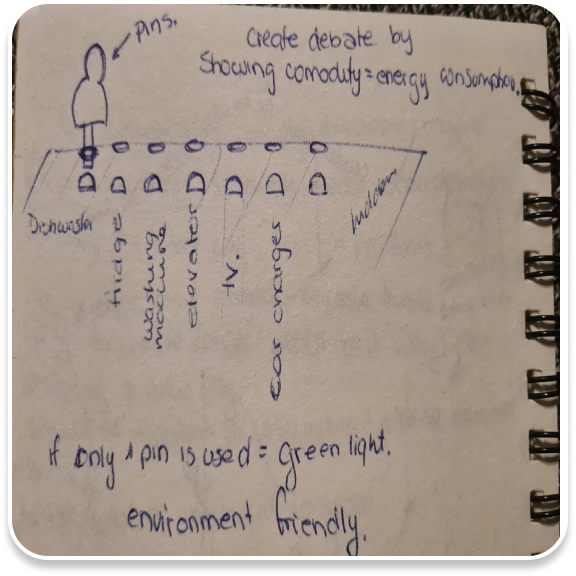 pins.
Create debate by
Showing comodity = energy consumption.
Dishwasher
fridge
washing
machine
elevator
tv.
car charges
hidden
if only 1 pin is used = green light.
environment friendly.